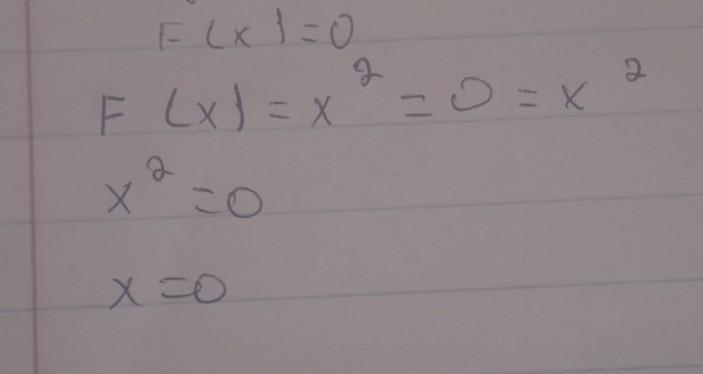 F(x)=0
F(x)=x²=0=x²
x²=0
x=0